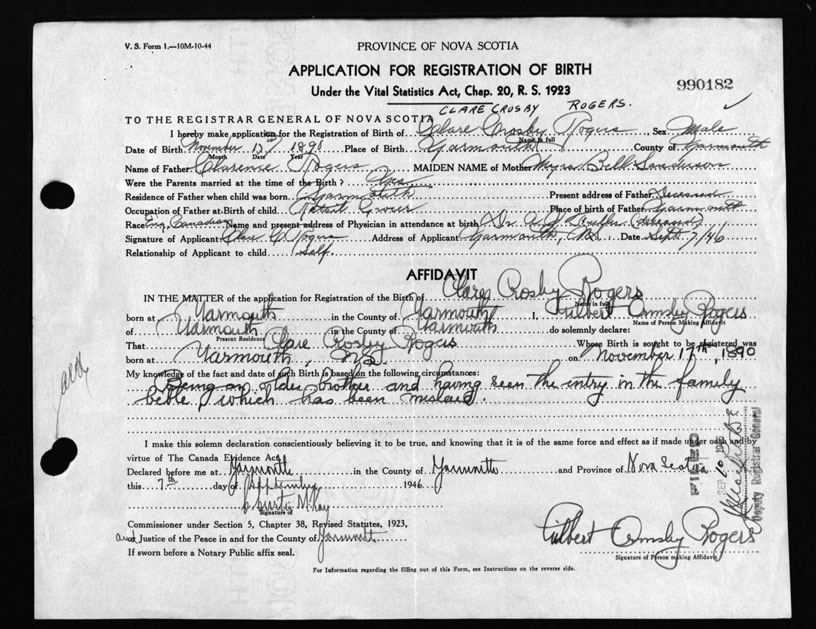 V. S. Form 1.—10M-10-44
PROVINCE OF NOVA SCOTIA
APPLICATION FOR REGISTRATION OF BIRTH
Under the Vital Statistics Act, Chap. 20, R. S. 1923
990182
CLARE CROSBY ROGERS.
TO THE REGISTRAR GENERAL OF NOVA SCOTIA
I hereby make application for the Registration of Birth of Clare Crosby Rogers, Sex Male
Name in full
Date of Birth November 17 / 1890 Place of Birth Yarmouth County of Yarmouth
Month Date Year
Name of Father Clarence Rogers MAIDEN NAME of Mother Myra Bell Sanderson
Were the Parents married at the time of the Birth? Yes
Residence of Father when child was born Yarmouth Present address of Father Deceased
Occupation of Father at Birth of child Retail Grocer Place of birth of Father Yarmouth
Race Eng. Canadian Name and present address of Physician in attendance at birth Dr. (deceased)
Signature of Applicant Clare C Rogers Address of Applicant Yarmouth, N.S. Date Sept 7/46
Relationship of Applicant to child Self
AFFIDAVIT
IN THE MATTER of the application for Registration of the Birth of Clare Crosby Rogers
Name in full
born at Yarmouth in the County of Yarmouth I, Fulbert Ormsby Rogers
Name of Person Making Affidavit
of Yarmouth in the County of Yarmouth do solemnly declare:
Present Residence
That Clare Crosby Rogers Whose Birth is sought to be registered was
born at Yarmouth, N.S. on November 17th, 1890
My knowledge of the fact and date of such Birth is based on the following circumstances:
Being an older brother and having seen the entry in the family
bible, which has been mislaid.
I make this solemn declaration conscientiously believing it to be true, and knowing that it is of the same force and effect as if made under oath and by
virtue of The Canada Evidence Act.
Declared before me at Yarmouth in the County of Yarmouth and Province of Nova Scotia
this 7th day of September 1946
Signature of
Commissioner under Section 5, Chapter 38, Revised Statutes, 1923,
and Justice of the Peace in and for the County of Yarmouth
If sworn before a Notary Public affix seal.
Fulbert Ormsby Rogers
Signature of Person making Affidavit
FILED
SEP 10
Deputy Registrar General
For Information regarding the filling out of this Form, see Instructions on the reverse side.